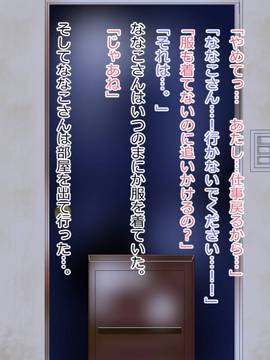 「やめてっ…　あたし、仕事戻るから…」
「ななこさん…！行かないでください…！！」
「服も着てないのに追いかけるの？」
「それは…。」
ななこさんはいつのまにか服を着ていた。
「じゃあね」
そしてななこさんは部屋を出て行った…。